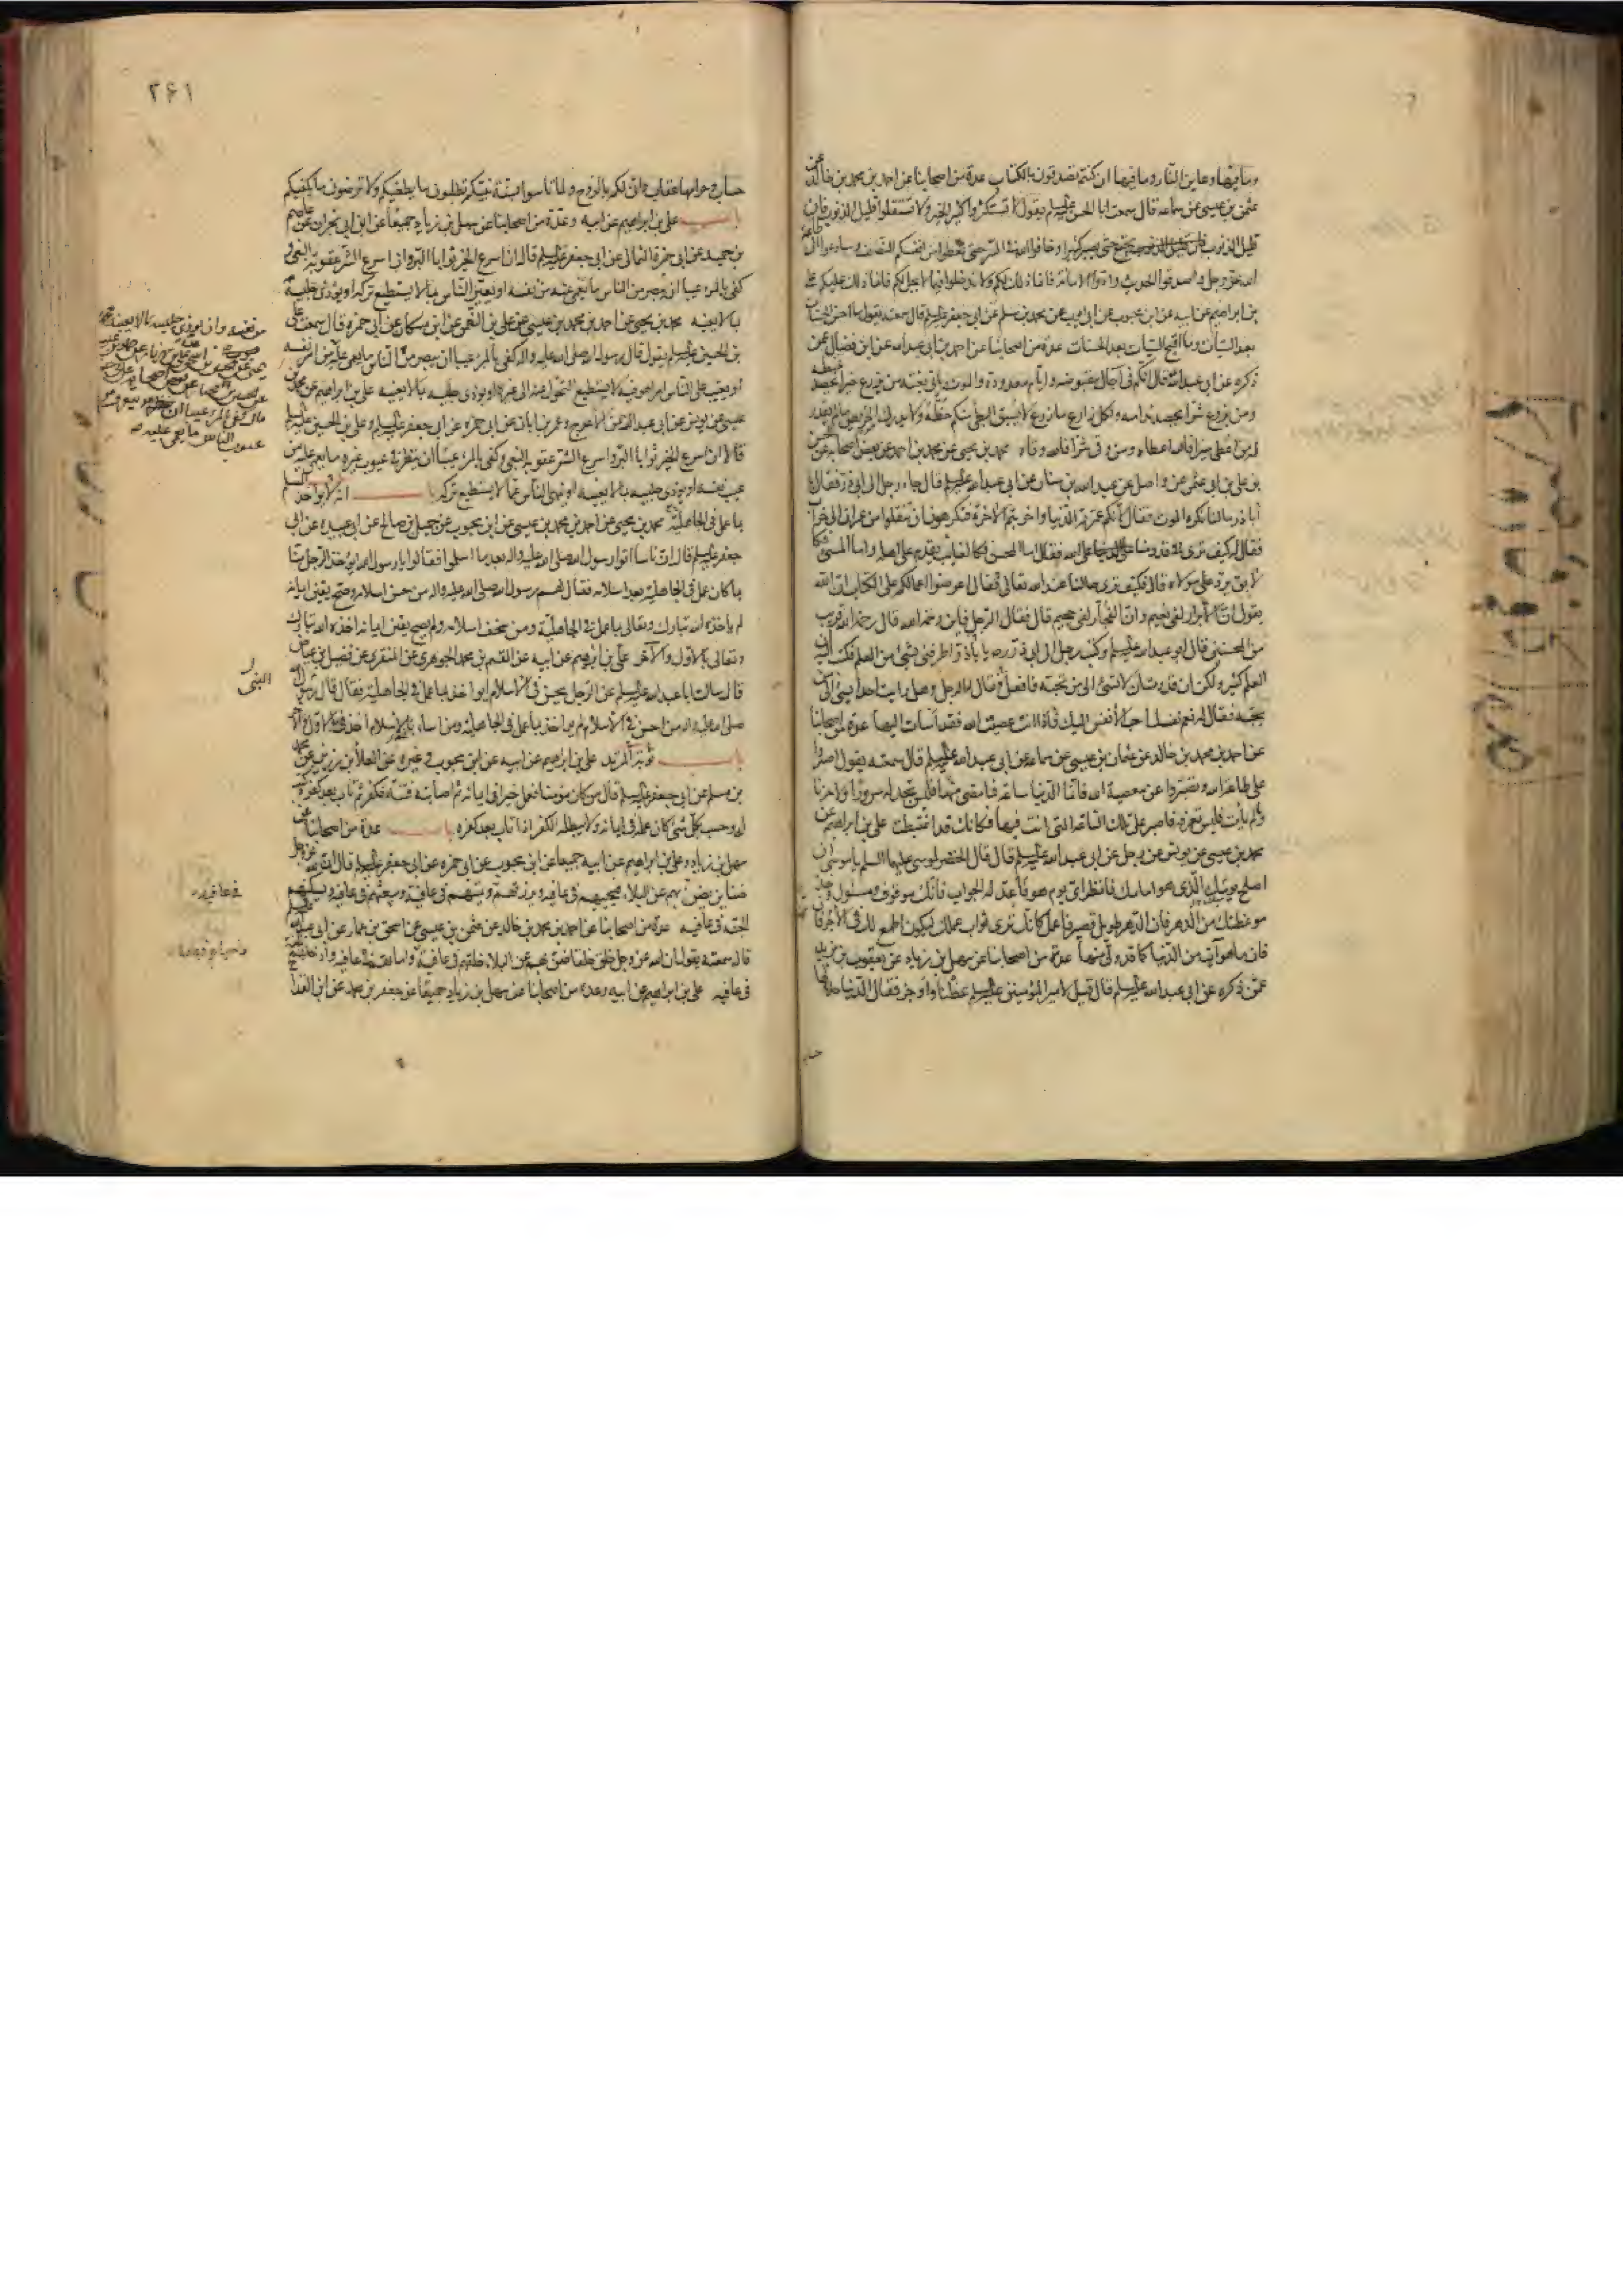 وما فيها وعاين النار وما فيها ان كنتم تصدقون بالكتاب عدة من اصحابنا عن احمد بن محمد بن خالد عن
عثمن بن عيسى عن سماعه قال سمعت ابا الحسن عليه السلم يقول لا تستكثروا كثير الخير ولا تستقلوا قليل الذنوب فان
قليل الذنوب يجتمع حتى يصير كثيرا وخافوا الله في السر حتى تعطوا من انفسكم النصف وسارعوا الى طاعة
الله عز وجل واصدقوا الحديث وادوا الامانة فانما ذلك لكم ولا تدخلوا فيما لا يحل لكم فانما ذلك عليكم على
بن ابراهيم عن ابيه عن ابن محبوب عن ابى ايوب عن محمد بن مسلم عن ابي جعفر عليه السلم قال سمعته يقول ما احسن الحسنات
بعد السيات وما اقبح السيات بعد الحسنات عدة من اصحابنا عن احمد بن ابى عبد الله عن ابن فضال عمن
ذكره عن ابي عبد الله قال انكم في اجال مقبوضه وايام معدودة والموت ياتى بغتة من يزرع خيرا يحصد غبطه
ومن يزرع شرا يحصد ندامه ولكل زارع ما زرع لا يسبق البطئ منكم حظه ولا يدرك حريص ما لم يقدر
له من اعطى خيرا فالله اعطاه ومن وقى شرا فالله وقاه محمد بن يحيى عن محمد بن احمد عن بعض اصحابه عن الحسن
بن على بن ابي عثمن عن واصل عن عبد الله بن سنان عن ابى عبد الله عليه السلم قال جاء رجل الى ابى ذر فقال يا
اباذر ما لنا نكره الموت فقال لانكم عمرتم الدنيا واخربتم الاخرة فتكرهون ان تنقلوا من عمران الى خراب
فقال له كيف ترى قدومنا على الله فقال اما المحسن فكالغائب يقدم على اهله واما المسئ فكا
لابق يرد على مولاه قال فكيف ترى حالنا عند الله تعالى فقال اعرضوا اعمالكم على الكتاب ان الله
يقول ان الابرار لفى نعيم وان الفجار لفى جحيم قال فقال الرجل فاين رحمة الله قال رحمة الله قريب
من المحسنين قال ابو عبد الله عليه السلم وكتب رجل الى ابى ذر ره يا باذر اطرفنى بشئ من العلم فكتب اليه ان
العلم كثير ولكن ان قدرت ان لا تسئ الى من تحبه فافعل قال فقال له الرجل وهل رايت احدا يسئ الى من
يحبه فقال له نعم نفسك احب الانفس اليك فاذا انت عصيت الله فقد اسات اليها عدة من اصحابنا
عن احمد بن محمد بن خالد عن عثمان بن عيسى عن سماعه عن ابى عبد الله عليه السلم قال سمعته يقول اصبروا
على طاعة الله وتصبروا عن معصية الله فانما الدنيا ساعة فما مضى منها فليس تجد له سرورا ولا حزنا
وما لم يات فليس تعرفه فاصبر على تلك الساعة التى انت فيها فكانك قد اغتبطت على بن ابراهيم عن
محمد بن عيسى عن يونس عن رجل عن ابى عبد الله عليه السلم قال قال الخضر لموسى عليهما السلم يا موسى ان
اصلح يوميك الذى هو امامك فانظر اى يوم هو فاعد له الجواب فانك موقوف ومسئول وخذ
موعظتك من الدهر فان الدهر طويل قصير فاعمل كانك ترى ثواب عملك ليكون اطمع لك فى الاجر
فان ما هو آت من الدنيا كما قد ولى منها عدة من اصحابنا عن سهل بن زياد عن يعقوب بن يزيد
عمن ذكره عن ابى عبد الله عليه السلم قال قيل لامير المؤمنين عليه السلم عظنا واوجز فقال الدنيا حلالها
٢٤١
حساب وحرامها عقاب وانى لكم بالروح ولما تاسوا بسنة نبيكم تطلبون ما يطغيكم ولا ترضون ما يكفيكم
باب على بن ابراهيم عن ابيه وعدة من اصحابنا عن سهل بن زياد جميعا عن ابن ابى نجران عن عاصم
بن حميد عن ابى حمزة الثمالى عن ابى جعفر عليه السلم قال ان اسرع الخير ثوابا البر وان اسرع الشر عقوبة البغى و
كفى بالمرء عيبا ان يبصر من الناس ما يعمى عنه من نفسه او يعير الناس بما لا يستطيع تركه او يؤذى جليسه
بما لا يعنيه محمد بن يحيى عن احمد بن محمد بن عيسى عن على بن النعمن عن ابن مسكان عن ابى حمزه قال سمعت على
بن الحسين عليه السلم يقول قال رسول الله صلى الله عليه واله كفى بالمرء عيبا ان يبصر من الناس ما يعمى عليه من امر نفسه
او يعيب على الناس امرا هو فيه لا يستطيع التحول عنه الى غيره او يؤذى جليسه بما لا يعنيه على بن ابراهيم عن محمد بن
عيسى عن يونس عن ابى عبد الرحمن الاعرج وعمر بن ابان عن ابى حمزه عن ابى جعفر عليه السلم وعلى بن الحسين عليه السلم
قالا ان اسرع الخير ثوابا البر واسرع الشر عقوبة البغى وكفى بالمرء عيبا ان ينظر فى عيوب غيره ما يعمى عليه من
عيب نفسه او يؤذى جليسه بما لا يعنيه او ينهى الناس عما لا يستطيع تركه باب انه لا يواخذ المسلم
بما عمل فى الجاهلية محمد بن يحيى عن احمد بن محمد بن عيسى عن ابن محبوب عن جميل بن صالح عن ابى عبيده عن ابى
جعفر عليه السلم قال ان ناسا اتوا رسول الله صلى الله عليه واله بعد ما اسلموا فقالوا يا رسول الله ايؤخذ الرجل منا
بما كان عمل فى الجاهلية بعد اسلامه فقال لهم رسول الله صلى الله عليه واله من حسن اسلامه وصح يقين ايمانه
لم ياخذه الله تبارك وتعالى بما عمل فى الجاهلية ومن سخف اسلامه ولم يصح يقين ايمانه اخذه الله تبارك
وتعالى بالاول والاخر على بن ابرهيم عن ابيه عن القسم بن محمد الجوهرى عن المنقرى عن فضيل بن عياض
قال سالت ابا عبد الله عليه السلم عن الرجل يحسن فى الاسلام ايواخذ بما عمل فى الجاهلية فقال قال رسول الله
صلى الله عليه واله من احسن فى الاسلام لم يواخذ بما عمل فى الجاهلية ومن اساء فى الاسلام اخذ بالاول والاخر
باب توبة المرتد على بن ابراهيم عن ابيه عن ابن محبوب وغيره عن العلا بن رزين عن محمد
بن مسلم عن ابى جعفر عليه السلم قال من كان مؤمنا فعمل خيرا فى ايمانه ثم اصابته فتنة فكفر ثم تاب بعد كفره كتب
له وحسب بكل شئ كان عمله فى ايمانه ولا يبطله الكفر اذا تاب بعد كفره باب عدة من اصحابنا عن
سهل بن زياد وعلى بن ابراهيم عن ابيه جميعا عن ابن محبوب عن ابى حمزه عن ابى جعفر عليه السلم قال ان لله عز وجل
ضناين يضن بهم عن البلاء فيحييهم فى عافيه ويرزقهم فى عافية ويميتهم فى عافية ويبعثهم فى عافيه ويسكنهم
الجنة فى عافيه عدة من اصحابنا عن احمد بن محمد بن خالد عن عثمن بن عيسى عن اسحق بن عمار عن ابى عبد الله
قال سمعته يقول ان الله عز وجل خلق خلقا ضن بهم عن البلاء خلقهم فى عافية واحياهم فى عافيه واماتهم فى عافيه وادخلهم الجنة
فى عافيه على بن ابراهيم عن ابيه وعدة من اصحابنا عن سهل بن زياد جميعا عن جعفر بن محمد عن ابن القداح
من نفسه وان يؤذى جليسه بما لا يعنيه
النبى